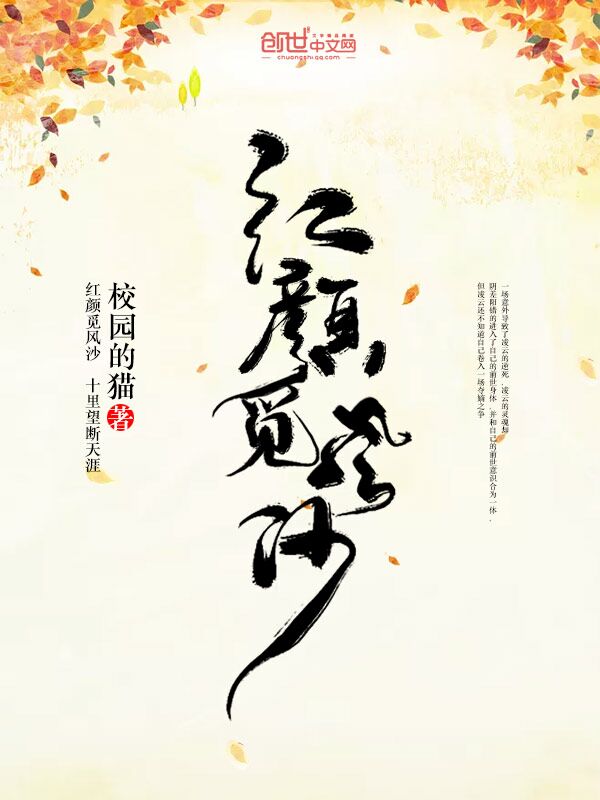 创世中文网
文学精品阅读
chuangshi.qq.com
红颜觅风沙
一场意外导致了凌云的逆死 凌云的灵魂却
阴差阳错的进入了自己的前世身体.并和自己的前世意识合为一体.
但凌云还不知道自己卷入一场夺嫡之争
校园的猫 著
红颜觅风沙 十里望断天涯